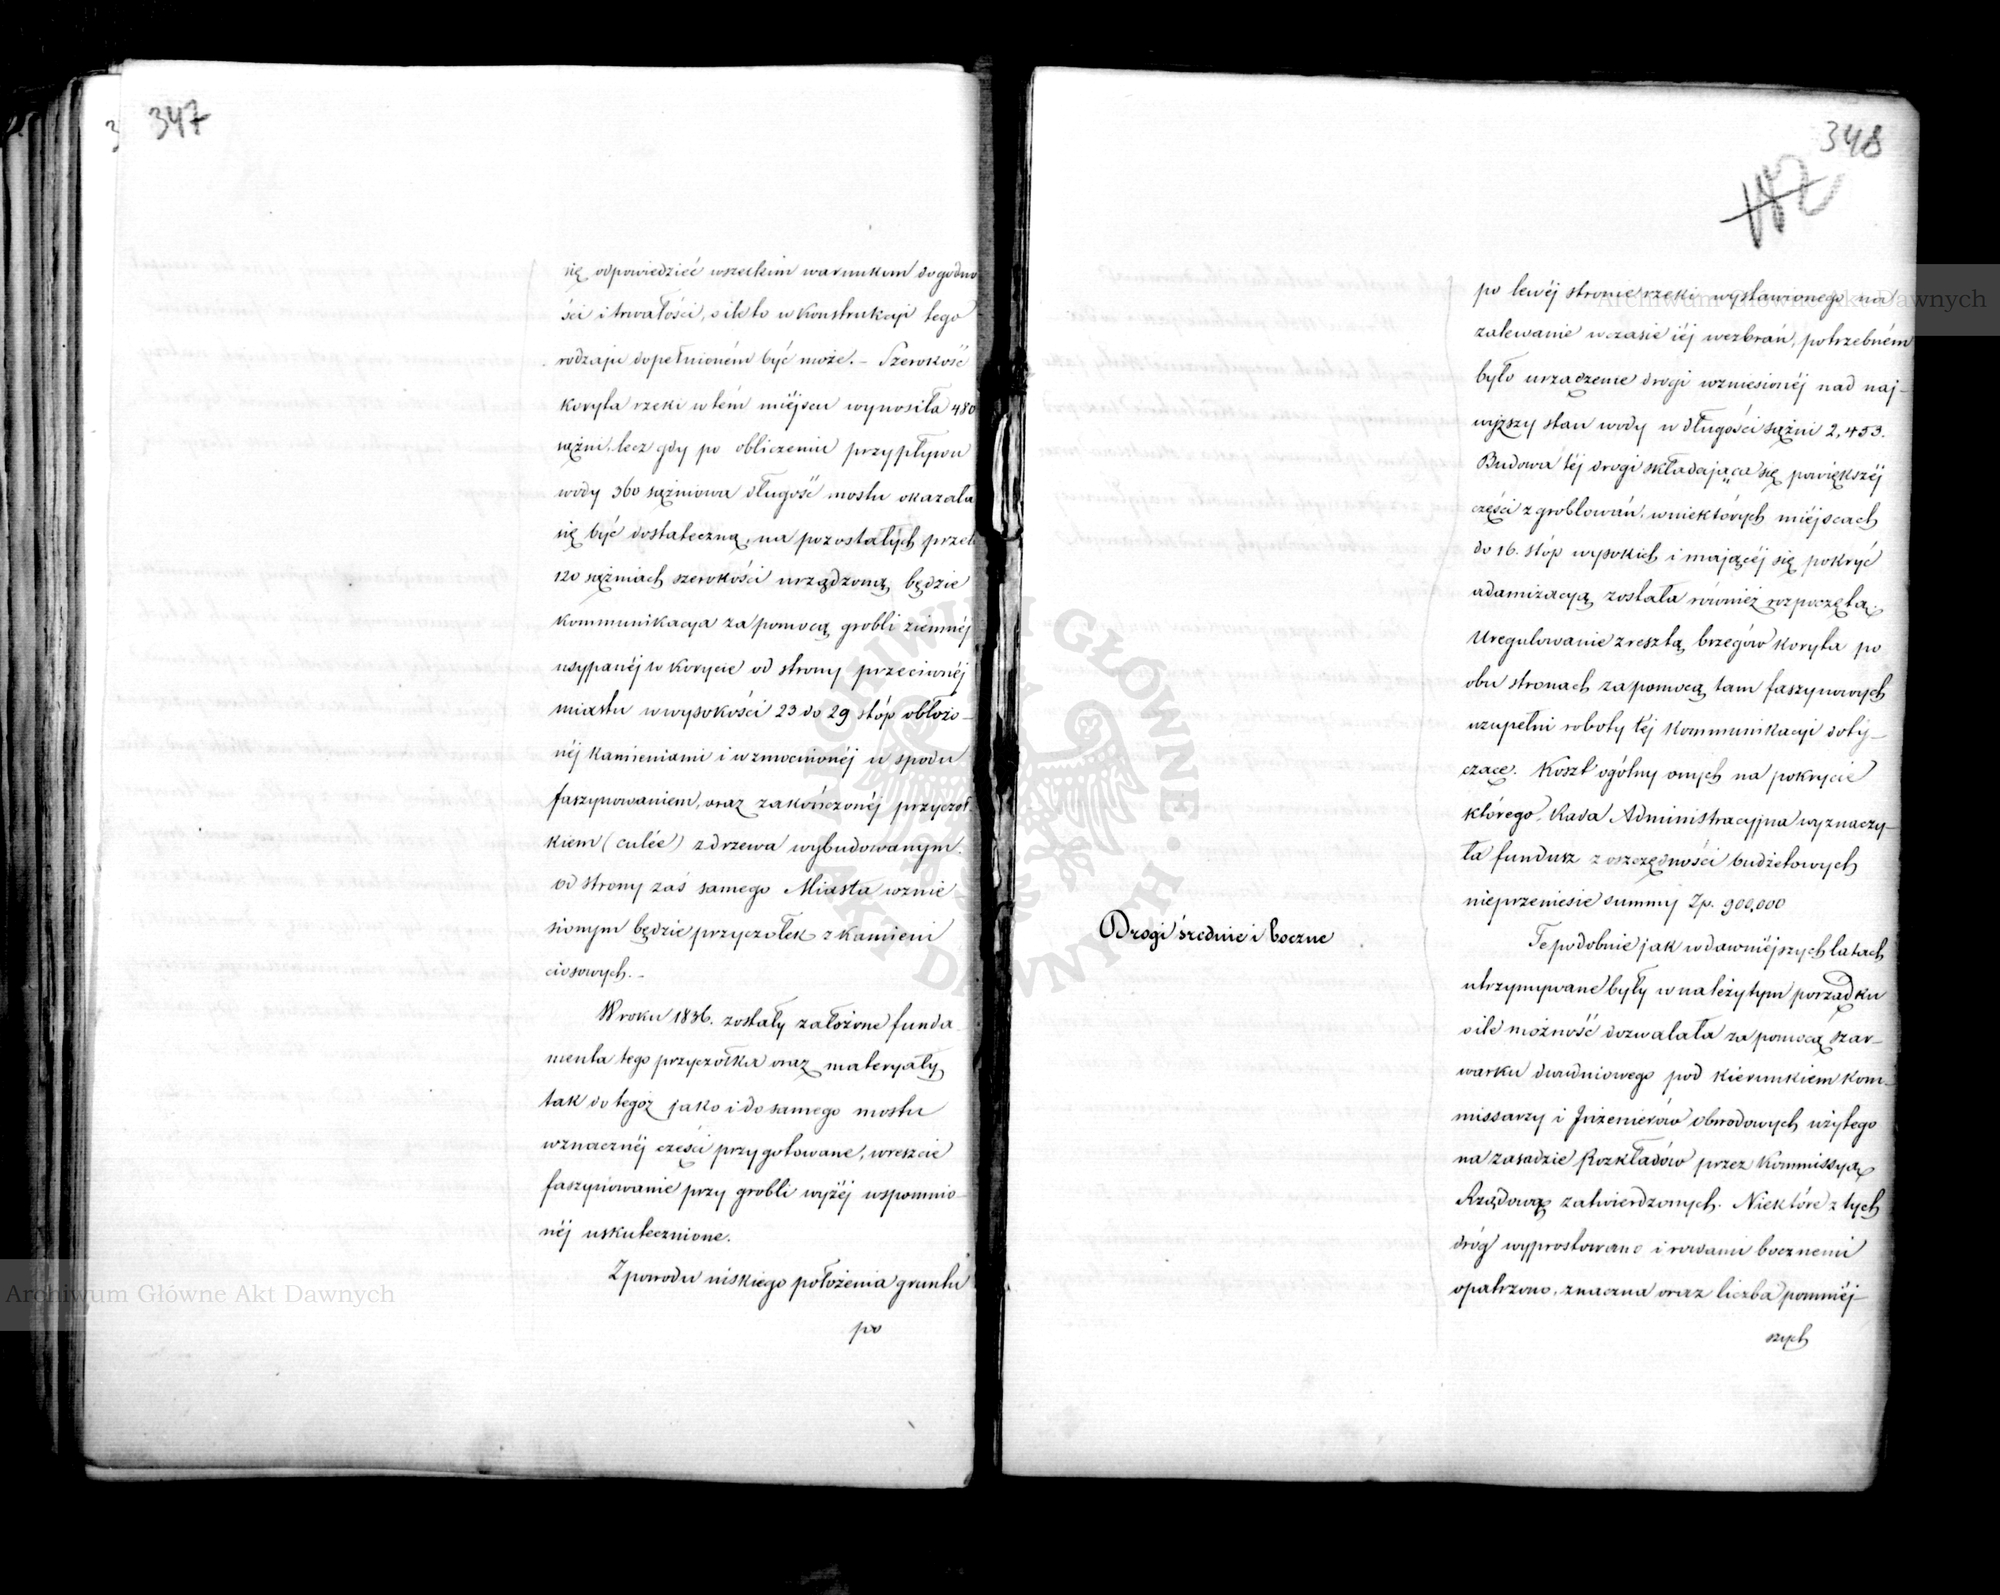 347
się odpowiedzieć wszelkim warunkom dogodno
ści i trwałości, o ile to w Konstrukcyi tego
rodzaju dopełnioném być może. – Szerokość
koryta rzeki w tém miéjscu wynosiła 480
sążni, lecz gdy po obliczeniu przypływu
wody 360 sążniowa długość mostu okazała
się być dostateczną, na pozostałych przeto
120 sążniach szerokości urządzoną będzie
kommunikacya za pomocą grobli ziemnéj
usypanéj w korycie od strony przeciwnéj
miastu w wysokości 23 do 29 stóp obłożo-
néj kamieniami i wzmocnionéj u spodu
faszynowaniem, oraz zakończonéj przyczoł-
kiem (culée) z drzewa wybudowanym.
Od strony zaś samego Miasta wznie
sionym będzie przyczołek z kamieni
ciosowych. –
W roku 1836. zostały założone funda-
menta tego przyczołka oraz materyały
tak do tegoż jako i do samego mostu
w znacznéj części przygotowane, wreszcie
faszynowanie przy grobli wyżéj wspomnio-
néj uskutecznione.
Z powodu niskiego położenia gruntu
po
348
182
po lewéj stronie rzeki wystawionego na
zalewanie w czasie iéj wezbrań, potrzebném
było urządzenie drogi wzniesionéj nad naj-
wyższy stan wody w długości sążni 2,453.
Budowa téj drogi składająca się powiększéj
części z groblowań, w niektórych miéjscach
do 16. stóp wysokich i mającéj się pokryć
adamizacyą została również rozpoczętą.
Uregulowanie zresztą brzegów koryta po
obu stronach za pomocą tam faszynowych
uzupełni roboty téj Kommunikacyi doty-
czące. Koszt ogólny onych na pokrycie
którego, Rada Administracyjna wyznaczy-
ła fundusz z oszczędności budżetowych
nieprzeniesie summy Zp. 900,000
Drogi średnie i boczne
Te podobnie jak w dawniéjszych latach
utrzymywane były w należytym porządku
o ile możność dozwalała za pomocą szar-
warku dwudniowego pod kierunkiem Kom-
missarzy i Inżenierów obwodowych użytego
na zasadzie Rozkładów przez Kommissyą
Rządową zatwierdzonych. Niektóre z tych
dróg wyprostowano i rowami bocznemi
opatrzono, znaczna oraz liczba pomniéj-
szych
Archiwum Główne Akt Dawnych
Archiwum Główne Akt Dawnych
ARCHIWUM GŁÓWNE AKT DAWNYCH